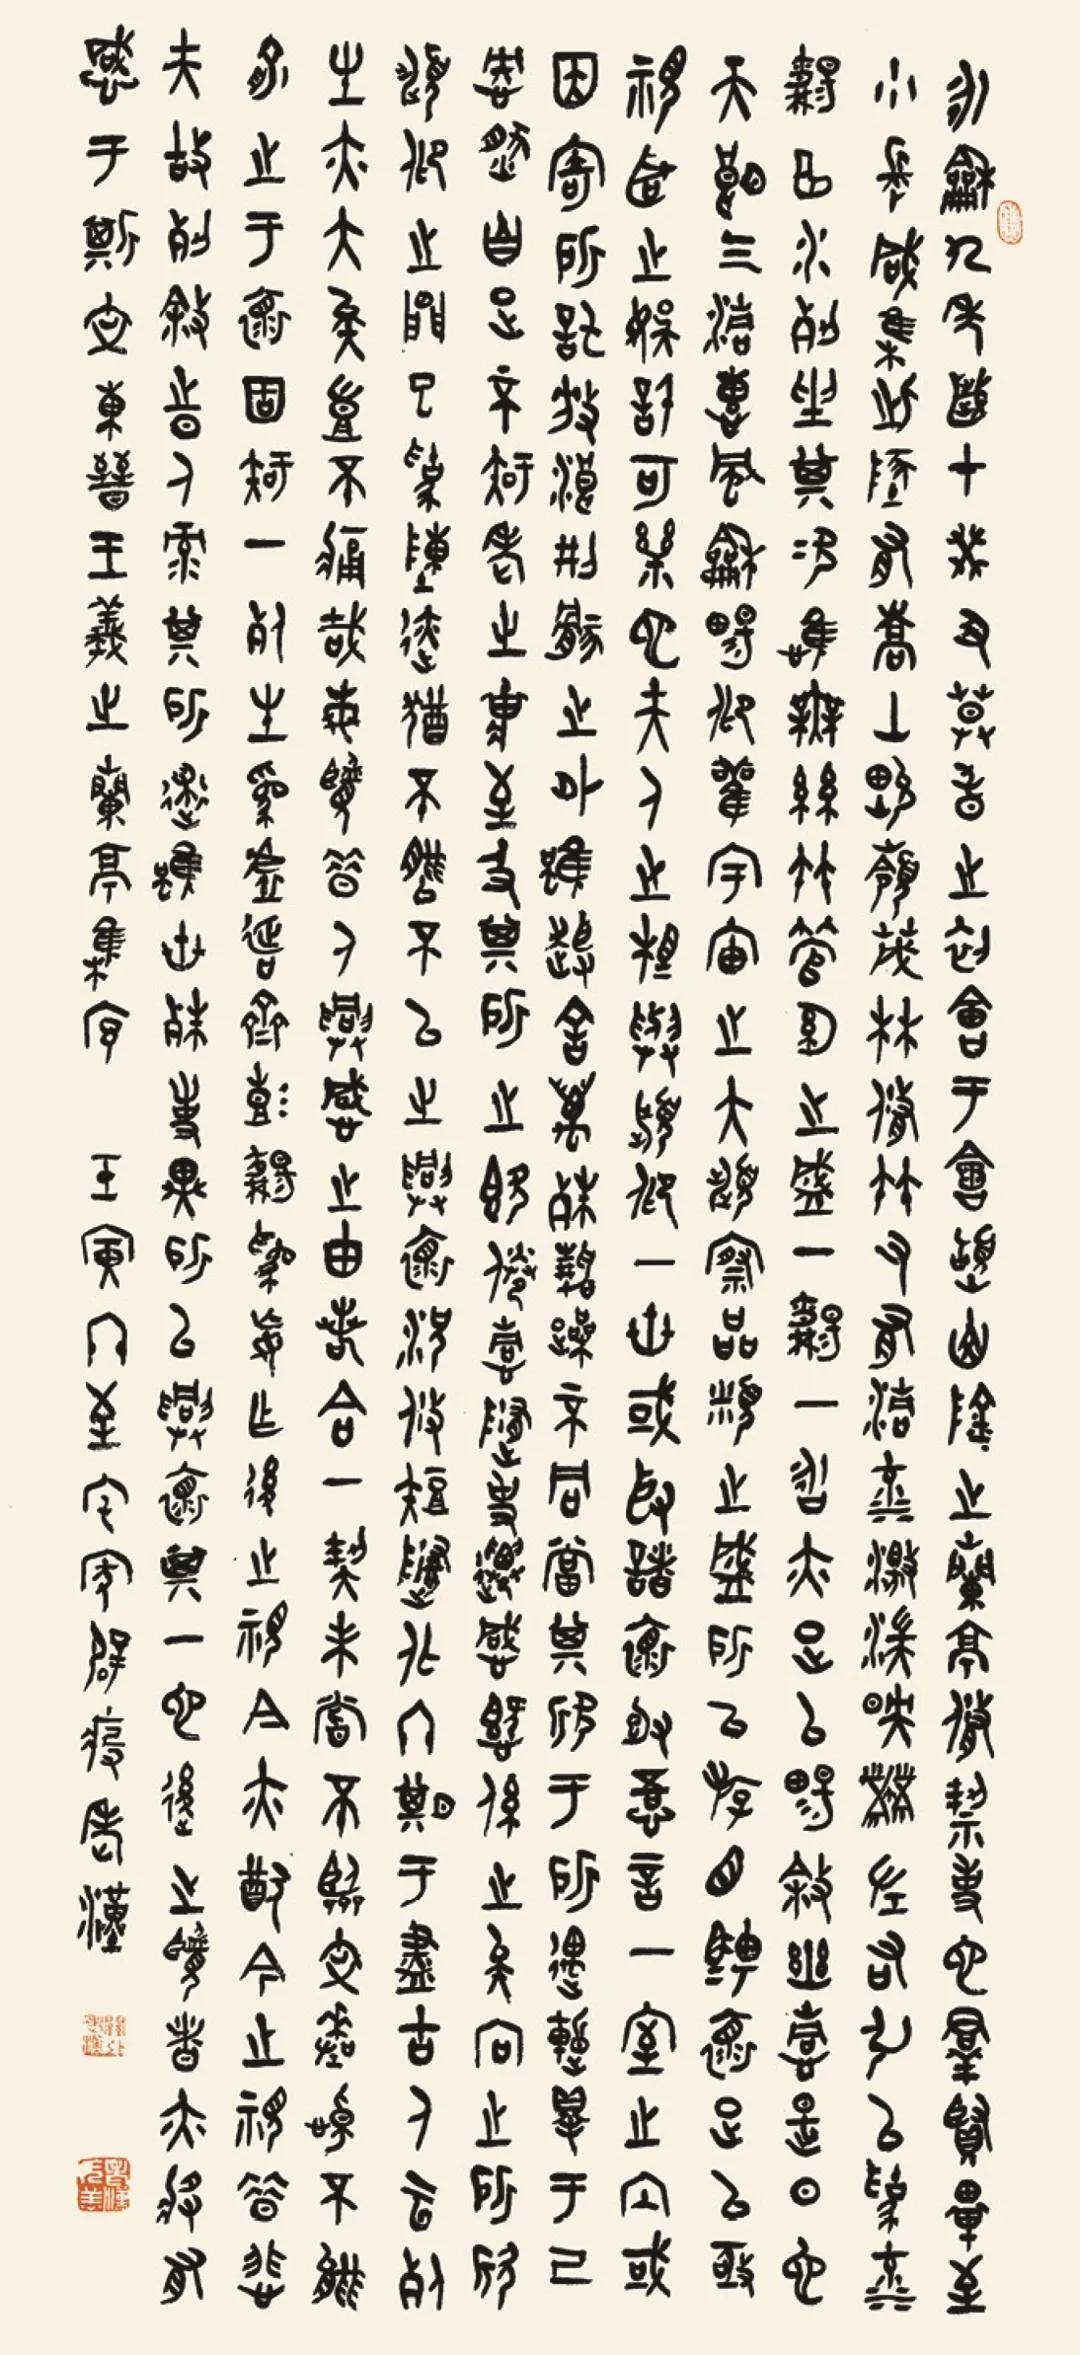 永龢九年歲在癸丑莫春之初會于會稽山陰之蘭亭修禊事也羣賢畢至
少長咸集此地有崇山峻領茂林修竹又有清流激湍映帶左右引以為流
觴曲水列坐其次雖無絲竹管弦之盛一觴一詠亦足以暢敘幽情是日也
天朗气清惠風龢暢仰觀宇宙之大俯察品類之盛所以遊目騁懷足以極
視聽之娛信可樂也夫人之相與俯仰一世或取諸懷抱悟言一室之內或
因寄所託放浪形骸之外雖趣舍萬殊靜躁不同當其欣于所遇暫得于己
快然自足不知老之將至及其所之既倦情隨事遷感慨係之矣向之所欣
俛仰之間已為陳跡猶不能不以之興懷況修短隨化終期于盡古人云死
生亦大矣豈不痛哉每覽昔人興感之由若合一契未嘗不臨文嗟悼不能
喻之于懷固知一死生為虛誕齊彭殤為妄作後之視今亦猶今之視昔悲
夫故列敘時人录其所述雖世殊事異所以興懷其一也後之覽者亦將有
感于斯文東晉王羲之蘭亭集序 壬寅冬至宅家避疫老漢